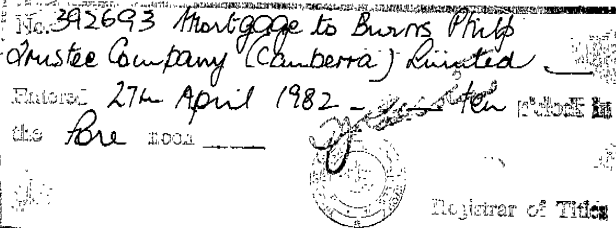 No. 392693 Mortgage to Burns Philp
Trustee Company (Canberra) Limited
Entered 27th April 1982 - ten o'clock in
the Fore noon
Registrar of Titles